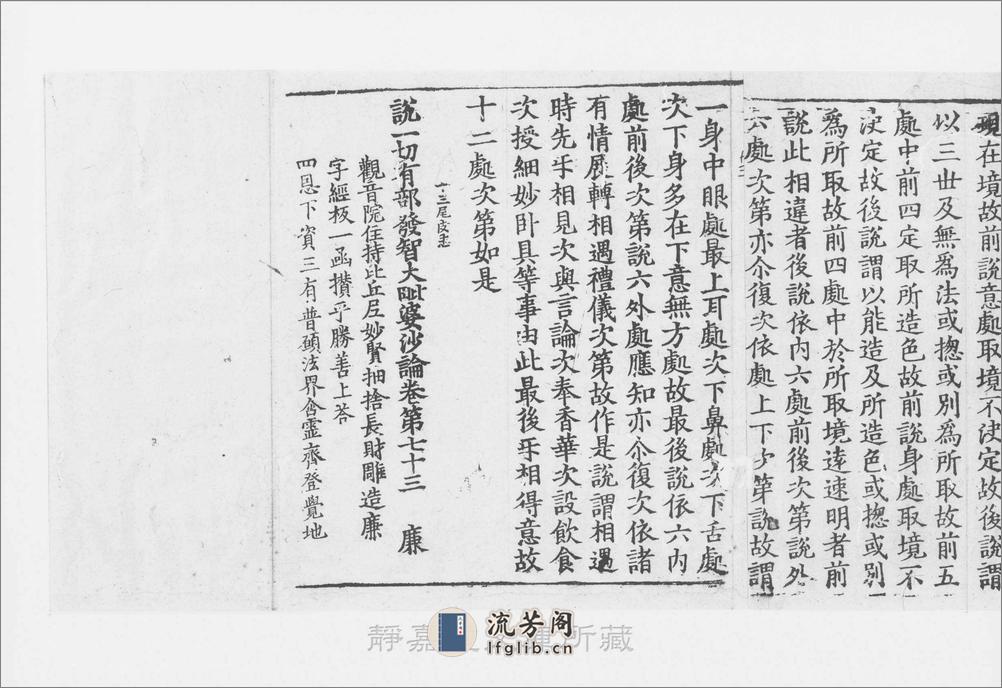 現在境故前說意處取境不決定故後說謂
以三世及無為法或揔或別為所取故前五
處中前四定取所造色故前說身處取境不
決定故後說謂以能造及所造色或揔或別
為所取故前四處中於所取境遠速明者前
說此相違者後說依內六處前後次第說外
六處次第亦尒復次依處上下次第說故謂
一身中眼處最上耳處次下鼻處次下舌處
次下身多在下意無方處故最後說依六內
處前後次第說六外處應知亦尒復次依諸
有情展轉相遇禮儀次第故作是說謂相遇
時先乎相見次與言論次奉香華次設飲食
次授細妙卧具等事由此最後乎相得意故
十二處次第如是
說一切有部發智大毗婆沙論卷第七十三 廉
觀音院住持比丘尼妙賢抽捨長財雕造廉
字經板一函攢乎勝善上荅
四恩下資三有普願法界含靈齊登覺地
流芳阁
lfglib.cn
靜嘉 所藏